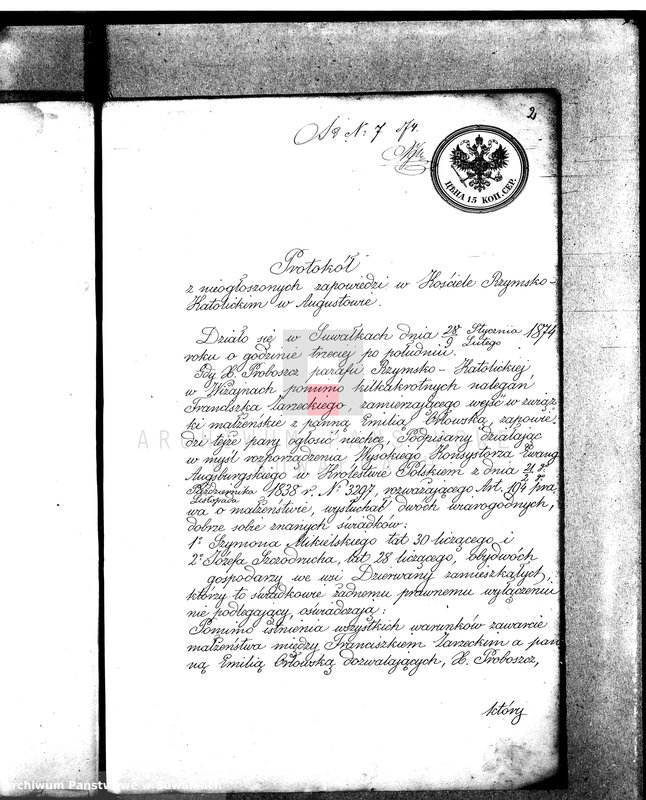 2
№ 7
ЦѢНА 15 КОП. СЕР.
Protokół
z nieogłoszonych zapowiedzi w Kościele Rzymsko-
Katolickim w Augustowie.
Działo się w Suwałkach dnia 28/9 Stycznia/Lutego 1874
roku o godzinie trzeciej po południu.
Gdy X. Proboszcz parafii Rzymsko-Katolickiej
w Wiżajnach pomimo kilkakrotnych nalegań
Franciszka Żarzeckiego, zamierzającego wejść w związ-
ki małżeńskie z panną Emilią Orłowską, zapowie-
dzi tejże pary ogłosić niechce, Podpisany działając
w myśl rozporządzenia Wysokiego Konsystorza Ewang
Augsburgskiego w Królestwie Polskiem z dnia 21
Października/Listopada 1838 r. № 3297, rozważającego Art. pra-
wa o małżeństwie, wysłuchał dwóch wiarogodnych,
dobrze sobie znanych świadków:
1° Szymona Mikielskiego lat 30 liczącego i
2° Józefa Szczodrucha, lat 28 liczącego, obydwóch
gospodarzy we wsi Dzierwany zamieszkałych,
którzy to świadkowie żadnemu prawnemu wyłączeniu
nie podlegający, oświadczają:
Pomimo istnienia wszystkich warunków zawarcie
małżeństwa między Franciszkiem Żarzeckim a pan
ną Emilią Orłowską dozwalających, X. Proboszcz,
który
Archiwum Państwowe w Suwałkach